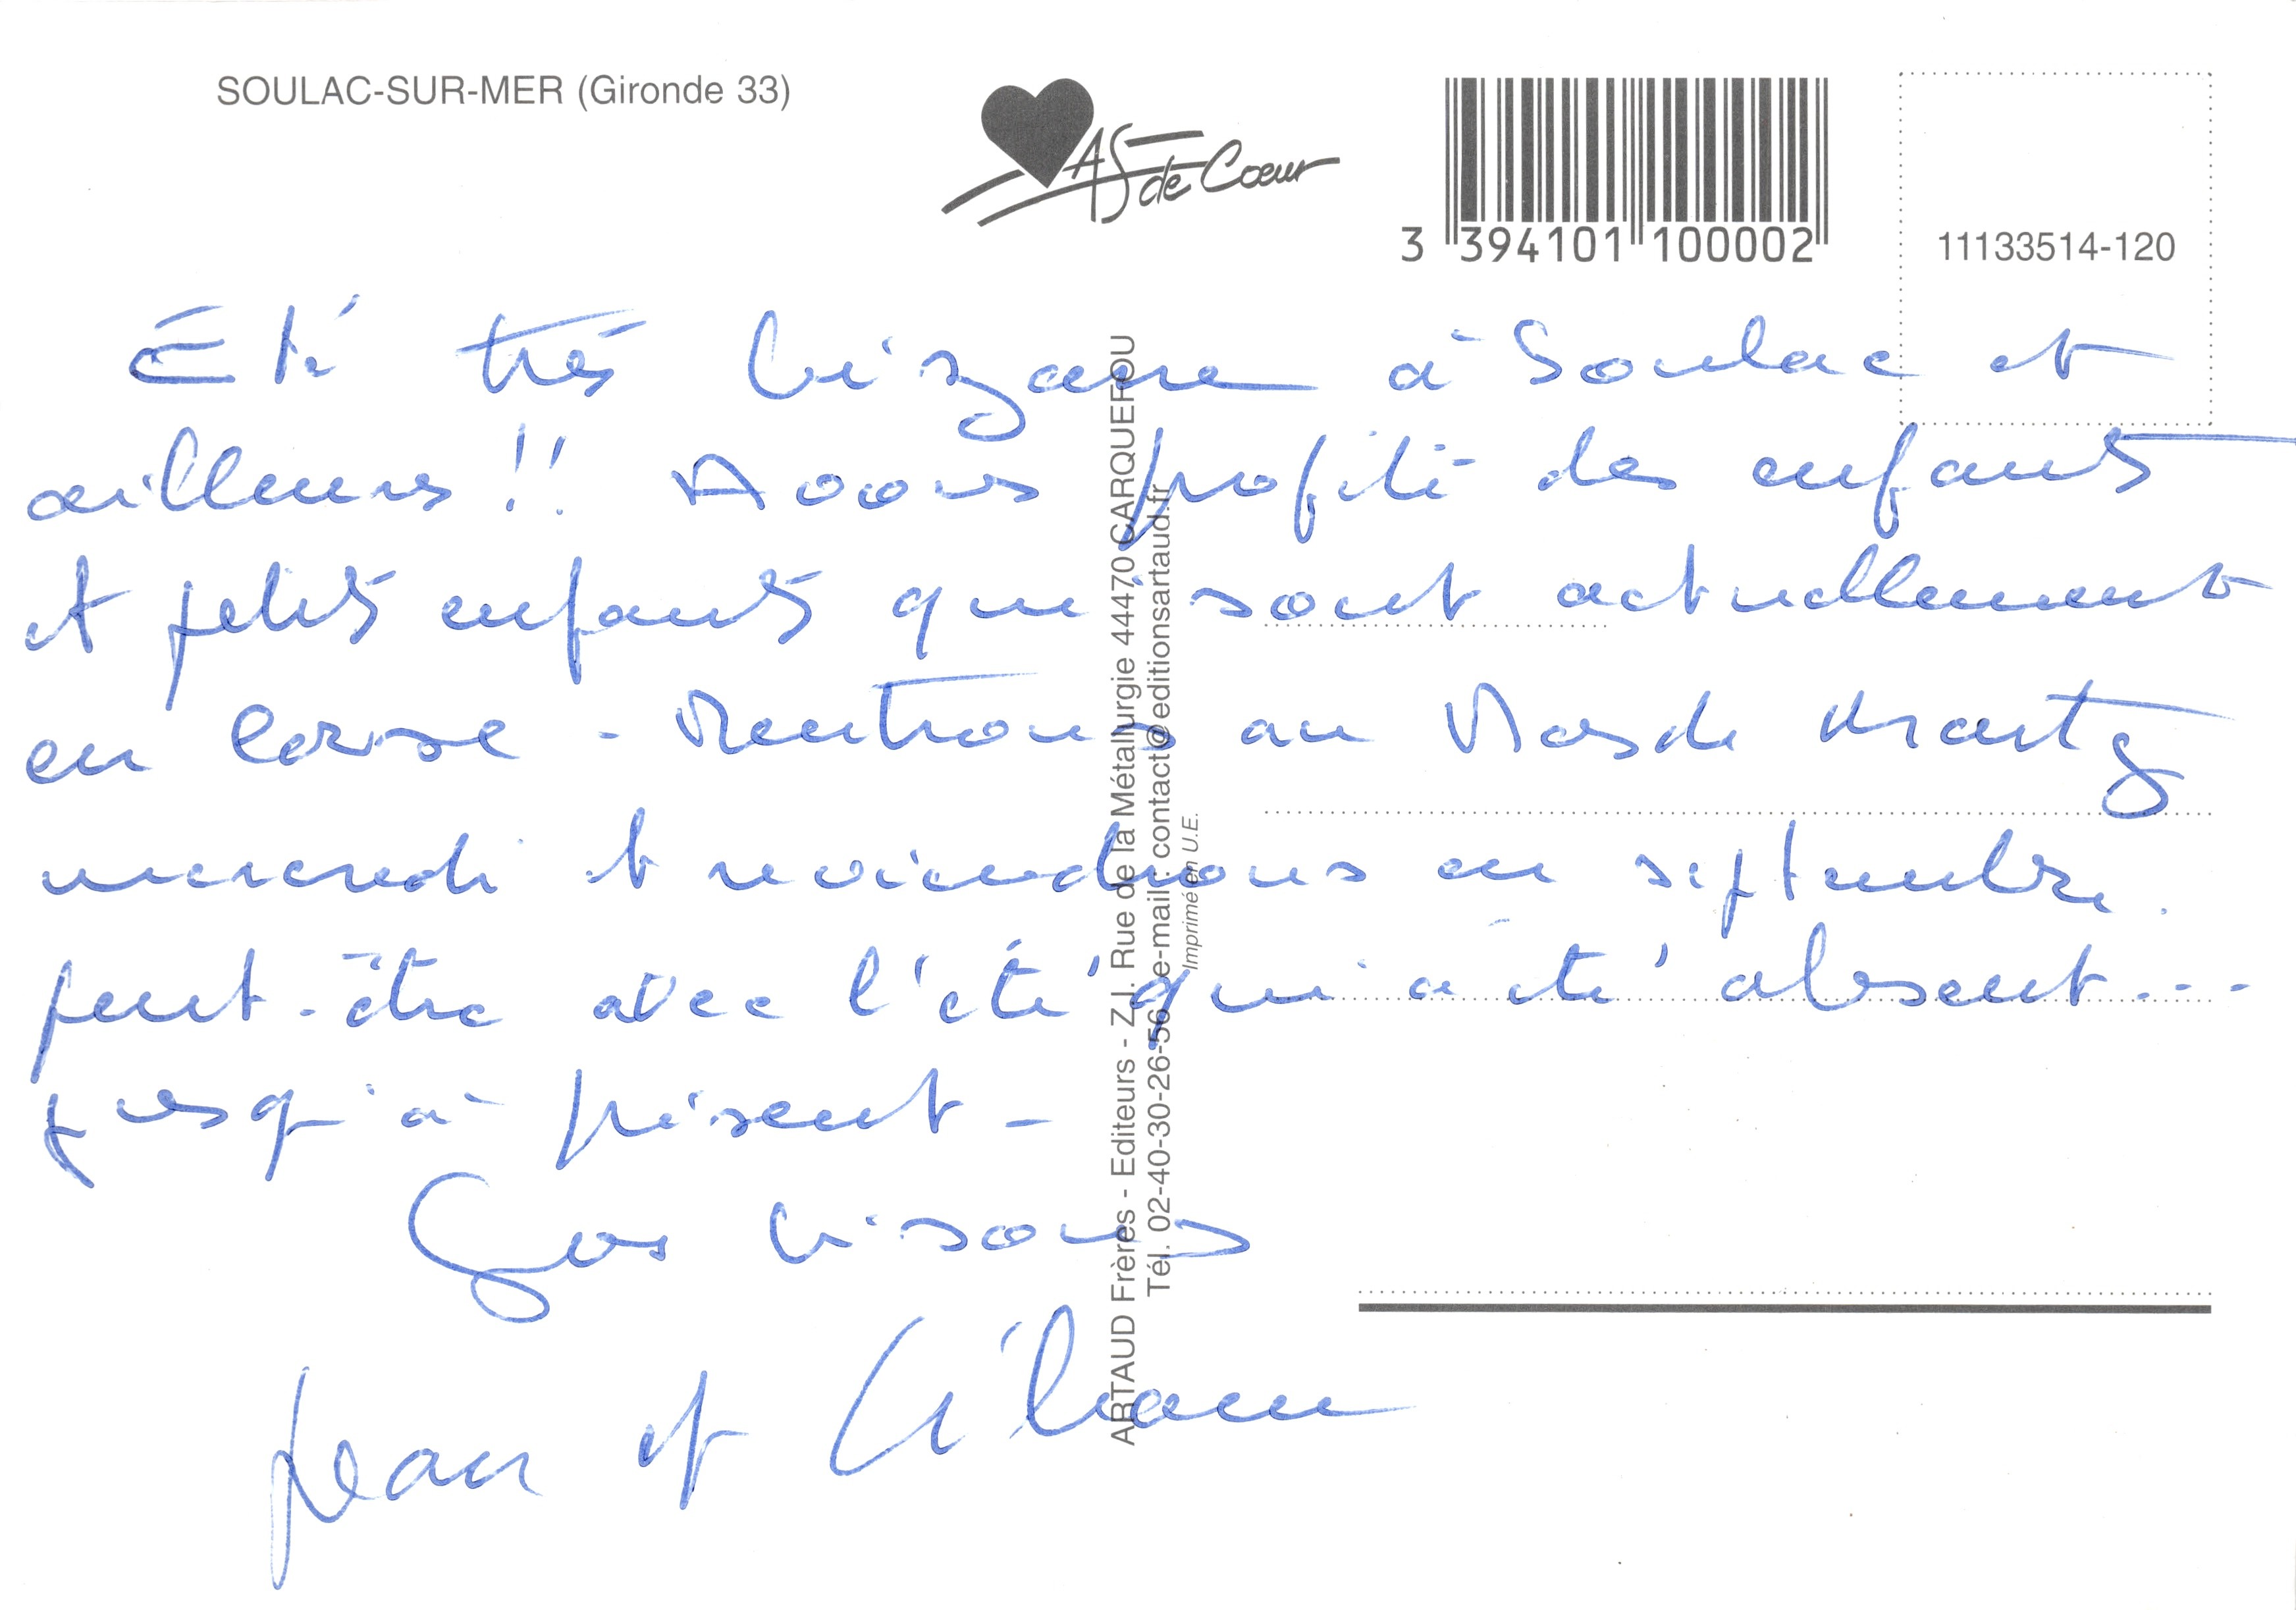 SOULAC-SUR-MER (Gironde 33)
As de Coeur
3 394101 100002
11133514-120
Eté très bizarre à Soulac et
ailleurs !! Avons profité des enfants
et petits enfants qui sont actuellement
en Corse - Rentrons au Mas de
mercredi et reviendrons en septembre.
peut-être avec l'été qui a été absent...
jusqu'à présent -
Gros bisous
Jean et
ARTAUD Frères - Editeurs - Z.I. Rue de la Métallurgie 44470 CARQUEFOU
Tél. 02-40-30-26-56 e-mail : contact@editionsartaud.fr
Imprimé en U.E.